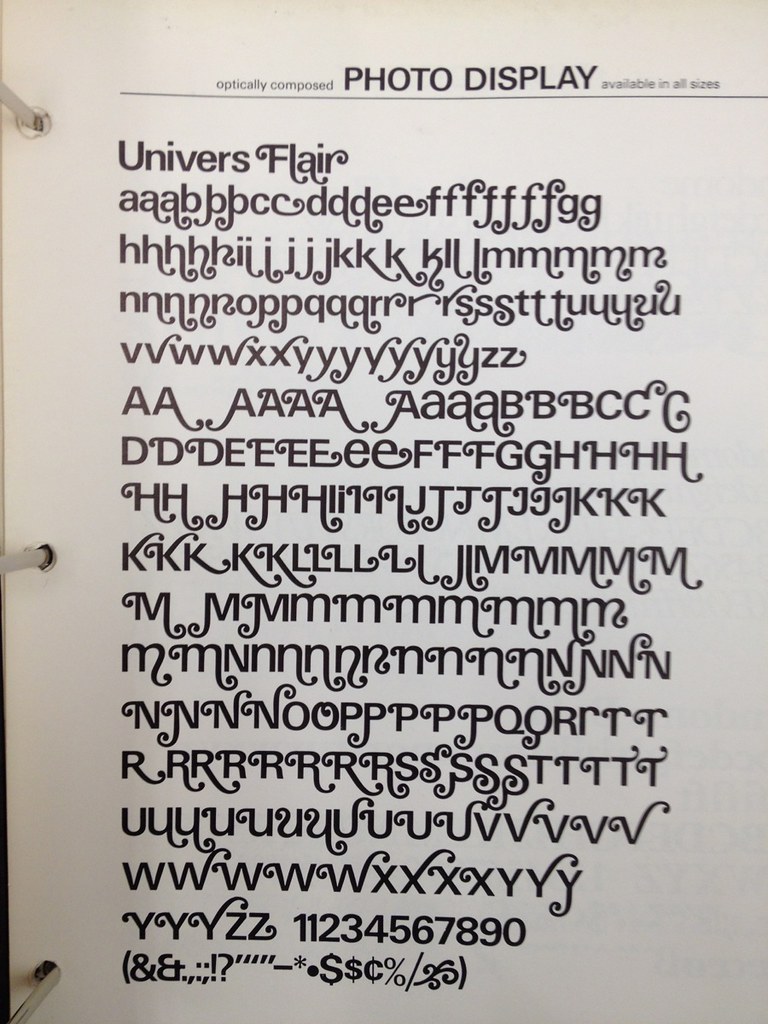 optically composed PHOTO DISPLAY available in all sizes
Univers Flair
aaabbbccdddeefffffffgg
hhhhhiijjjjkkkklllmmmmm
nnnnnoppqqqrrrrssstttuuuuu
vvwwwxxyyyyyyyyzzz
AAAAAAAaaaBBBCCC
DDDEEEEeeFFFGGHHHH
HHHHHIiIIIJJJJJJKKK
KKKKKLLLLLJJMMMMM
MMMmmmmmmmm
mmNnnnnnnnnNNNN
NNNNOOPPPPPQQRrrr
RRRRRRRRSSSSSTTTTT
UUUUUUUUUUVVVVV
WWWWWXXXXYYY
YYYZZ 11234567890
(&&.,:;!?""–*•$$¢%/)